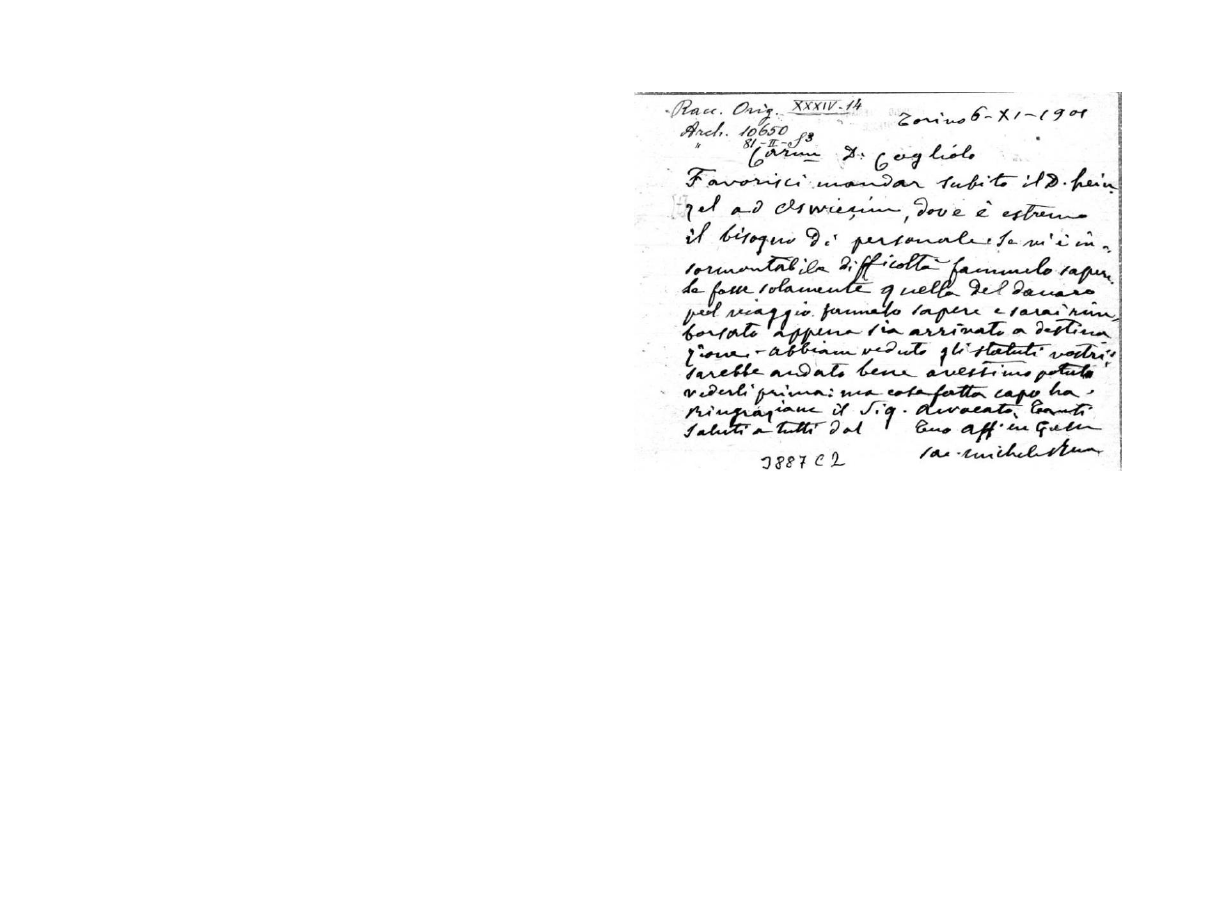 Racc. Orig. XXXIV-14
Torino 6-XI-1901
Arch. 10650
" 81-II-f3
Carmo D. Cogliolo
Favorisci mandar subito il D. Hein
zel ad Oswiecim, dove è estremo
il bisogno di personale. Se vi è in-
sormontabile difficoltà fammelo sapere.
Se fosse solamente quella del danaro
pel viaggio fammelo sapere e sarai rim
borsato appena sia arrivato a destina
zione. - abbiam veduto gli statuti vostri:
sarebbe andato bene avessimo potuto
vederli prima: ma cosa fatta capo ha.
Ringraziane il Sig. Avvocato. Tanti
saluti a tutti dal Tuo aff. in G.
Sac. Michele Rua
3887 C 2